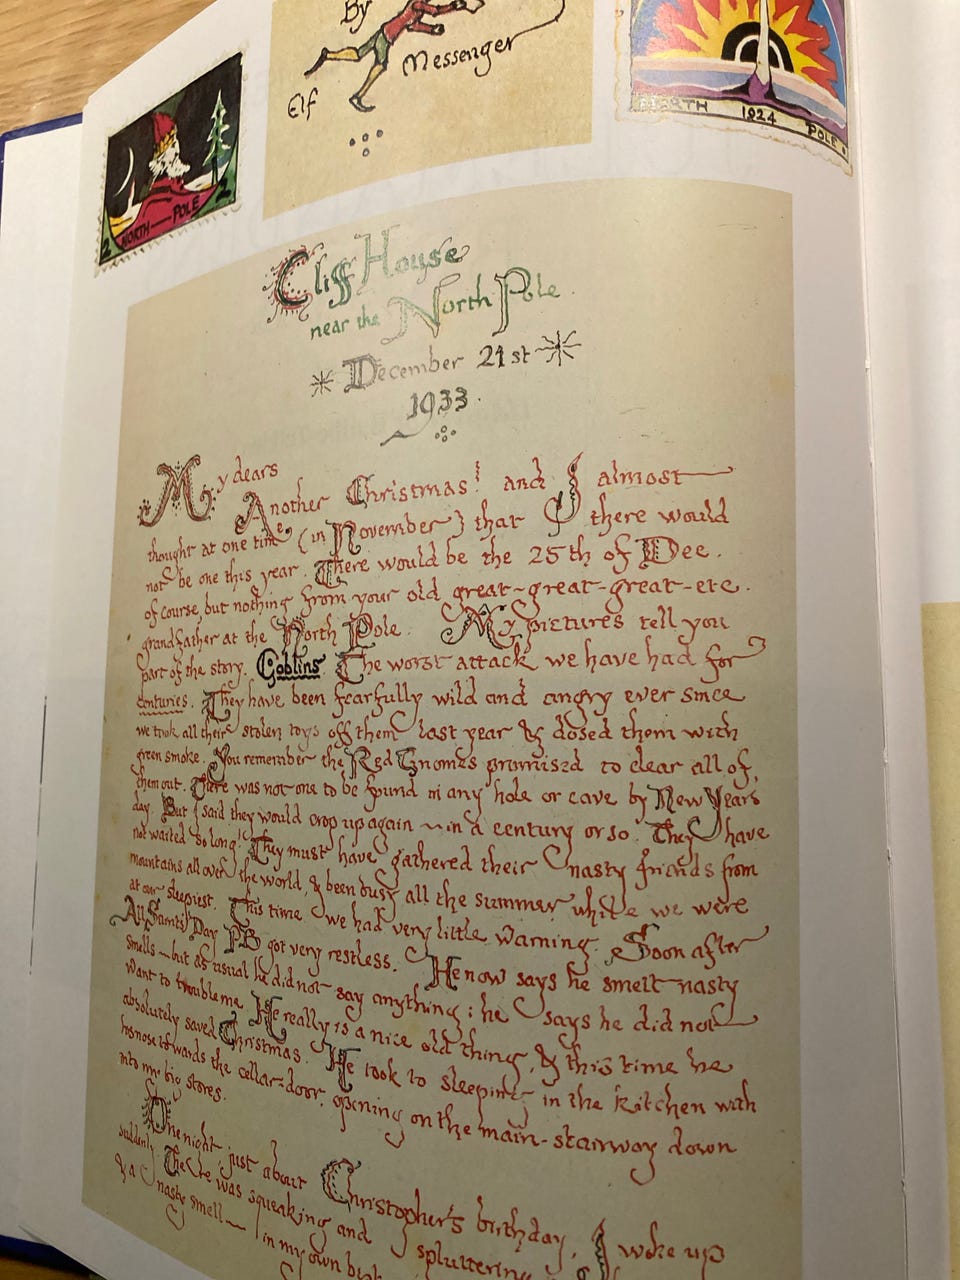 By
Messenger
Elf
2 NORTH — POLE 2
NORTH 1924 POLE
Cliff House
near the North Pole
December 21st
1933.
My dears
Another Christmas! and I almost
thought at one time (in November) that there would
not be one this year. There would be the 25th of Dec.
of course, but nothing from your old great-great-great-etc.
grandfather at the North Pole. My pictures tell you
part of the story. Goblins. The worst attack we have had for
centuries. They have been fearfully wild and angry ever since
we took all their stolen toys off them last year & dosed them with
green smoke. You remember the Red Gnomes promised to clear all of
them out. There was not one to be found in any hole or cave by New Years
day. But I said they would crop up again — in a century or so. They have
not waited so long! They must have gathered their nasty friends from
mountains all over the world, & been busy all the summer while we were
at our sleepiest. This time we had very little warning. Soon after
All Saints' Day PB got very restless. He now says he smelt nasty
smells — but as usual he did not say anything: he says he did not
want to trouble me. He really is a nice old thing, & this time he
absolutely saved Christmas. He took to sleeping in the kitchen with
his nose towards the cellar-door, opening on the main-stairway down
into my big stores.
One night just about Christopher's birthday, I woke up
suddenly. There was squeaking and spluttering
& a nasty smell — in my own best